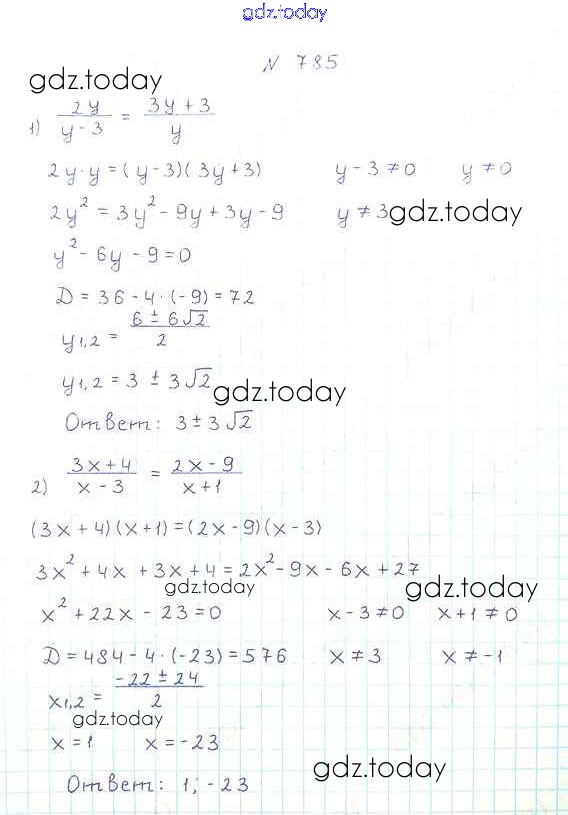 gdz.today
N 785
gdz.today
1) 2y/(y - 3) = (3y + 3)/y
2y·y = (y - 3)(3y + 3) y - 3 ≠ 0 y ≠ 0
2y² = 3y² - 9y + 3y - 9 y ≠ 3 gdz.today
y² - 6y - 9 = 0
D = 36 - 4·(-9) = 72
y1,2 = (6 ± 6√2)/2
y1,2 = 3 ± 3√2
gdz.today
Ответ: 3 ± 3√2
2) (3x + 4)/(x - 3) = (2x - 9)/(x + 1)
(3x + 4)(x + 1) = (2x - 9)(x - 3)
3x² + 4x + 3x + 4 = 2x² - 9x - 6x + 27
gdz.today gdz.today
x² + 22x - 23 = 0 x - 3 ≠ 0 x + 1 ≠ 0
D = 484 - 4·(-23) = 576 x ≠ 3 x ≠ -1
x1,2 = (-22 ± 24)/2
gdz.today
x = 1 x = -23
gdz.today
Ответ: 1; -23